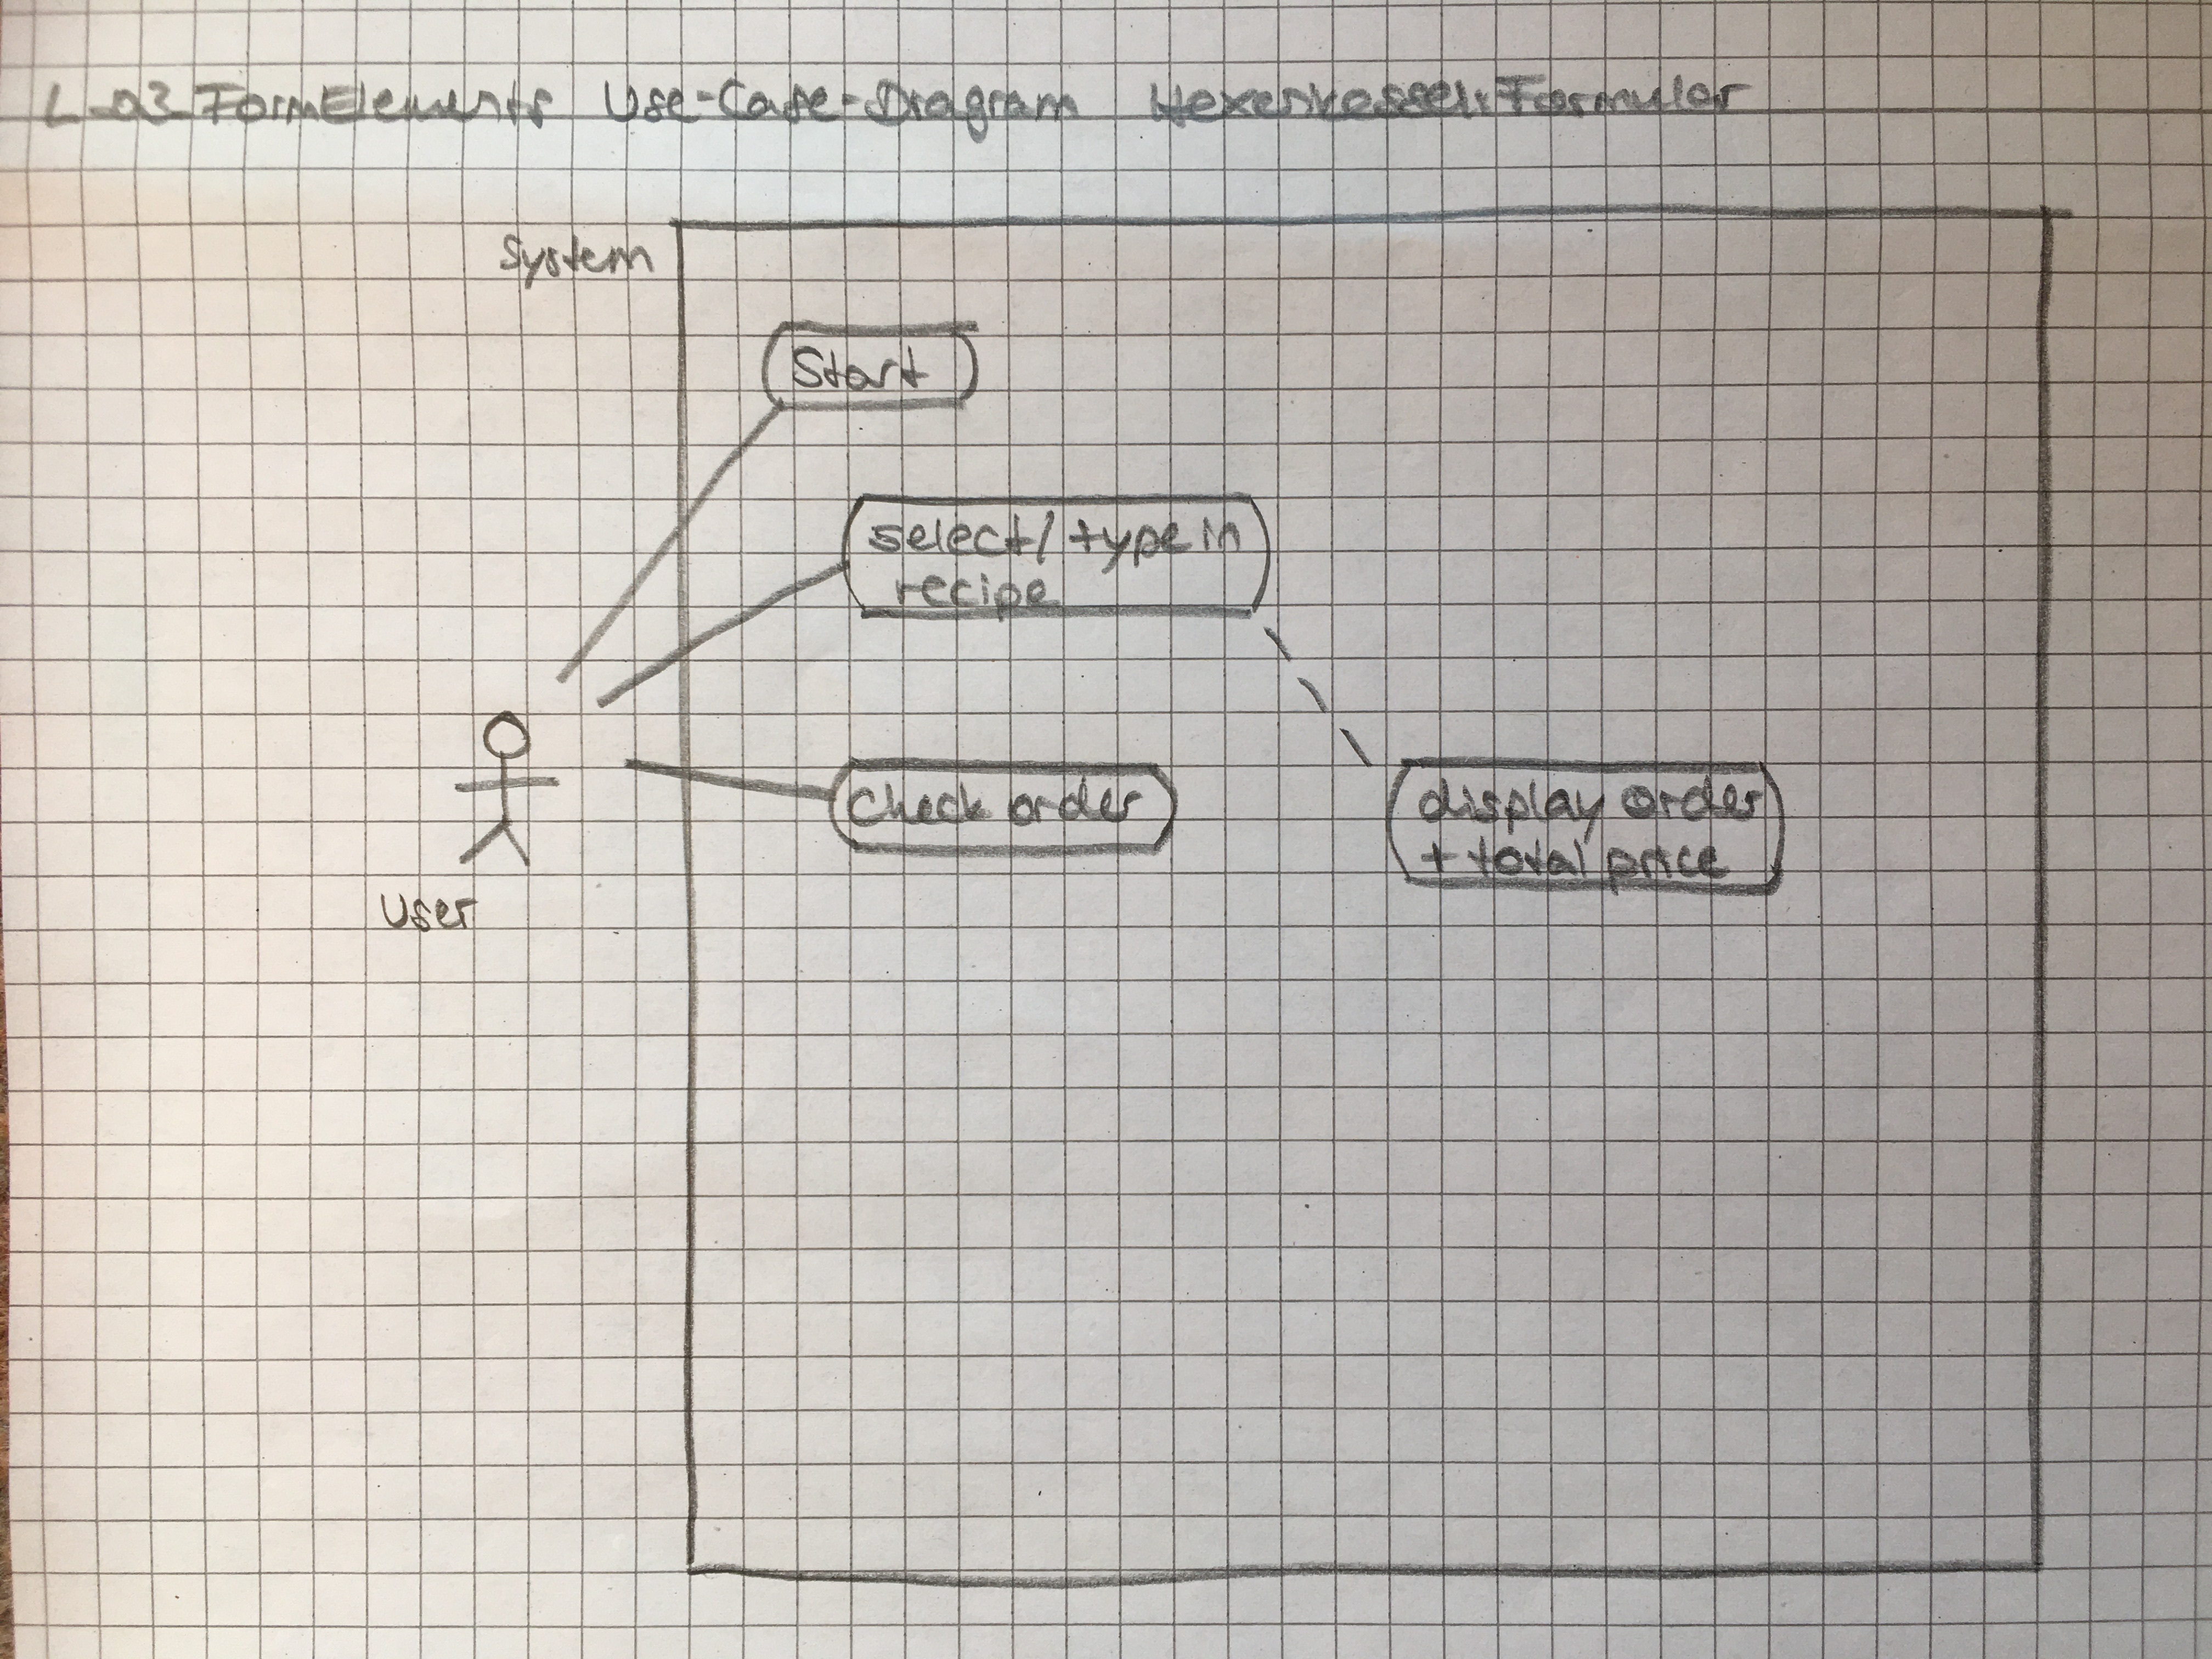 L02 FormElements Use-Case-Diagram Hexenkessel:Formular
System
Start
select/ type in
recipe
check order
display order
+ total price
User